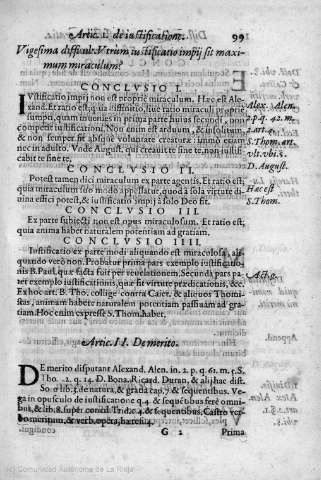 Artic. I. de iustificatione. 99
Vigesima difficul. Vtrum iustificatio impij sit maximum
miraculum?
CONCLVSIO I.
IVstificatio impij non est proprie miraculum. Hæc est Alexand.
Et ratio est, quia diffinitio, siue ratio miraculi proprie
sumpti, quam inuenies in prima parte huius secundæ, non
competit iustificationi. Non enim est arduum, & insolitum,
& non semper sit absque voluntate creaturæ: immo etiam
nec in adulto. Vnde August. qui creauit te sine te, non iustificabit
te sine te.
Alex. Alen.
2. p. q. 42. m.
S. Thom. art.
vlt. vbi. s.
D. August.
CONCLVSIO II.
Potest tamen dici miraculum ex parte agentis. Et ratio est,
quia miraculum suo modo appellatur, quod à sola virtute diuina
effici potest, & iustificatio impij à solo Deo fit.
Hæc est
S. Thom.
CONCLVSIO III.
Ex parte subiecti non est opus miraculosum. Et ratio est,
quia anima habet naturalem potentiam ad gratiam.
CONCLVSIO IIII.
Iustificatio ex parte modi aliquando est miraculosa, aliquando
verò non. Probatur prima pars exemplo iustificationis
B. Paul. quæ facta fuit per reuelationem. Secunda pars patet
exemplo iustificationis, quæ fit virtute prædicationis, &c.
Ex hoc art. B. Tho. collige contra Caiet. & aliquos Thomistas,
animam habere naturalem potentiam passiuam ad gratiam.
Hoc enim expresse S. Thom. habet.
Act. 9.
Artic. II. De merito.
DE merito disputant Alexand. Alen. in. 2. p. q. 61. m. 5. S.
Tho. 1. 2. q. 14. D. Bona. Ricard. Duran. & alij hac dist.
So. d lib. 3. de natura, & gratia cap. 7 & sequentibus. Vega
in opusculo de iustificatione q. 4 & sequentibus fere omnibus,
& lib. 8. super concil. Trid. c. 4. & sequentibus. Castro verbo
meritum, & verb. opera, hæresi. 4.
G 2 Prima
(c) Comunidad Autónoma de La Rioja